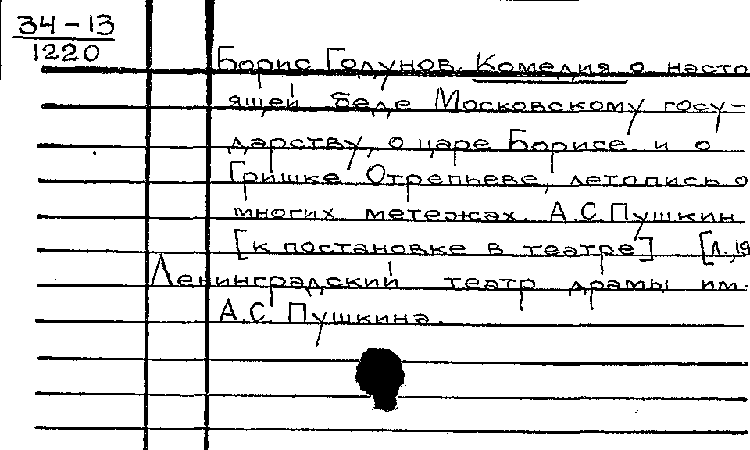 34-13
1220
Борис Годунов. Комедия о насто
ящей беде Московскому госу-
дарству, о царе Борисе и о
Гришке Отрепьеве, летопись о
многих метежах. А.С. Пушкин
[к постановке в театре] [Л., 19
Ленинградский театр драмы им.
А.С. Пушкина.